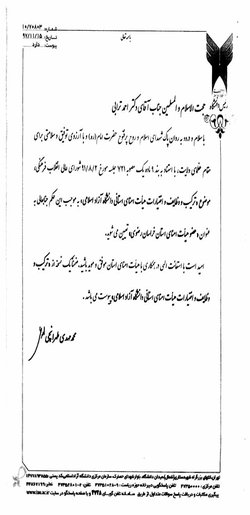 شماره: ۱۰/۲۰۸۰۳
تاریخ: ۹۲/۱/۱۵
پیوست: دارد
باسمه تعالی
ریاست دانشگاه
حجت الاسلام و المسلمین جناب آقای دکتر احمد ترابی
با سلام و درود به روان پاک شهدای اسلام و روح پرفتوح حضرت امام (ره) و با آرزوی توفیق و سلامتی برای
مقام عظمای ولایت، با استناد به بند ۹ ماده یک مصوبه ۷۲۱ جلسه مورخ ۹۱/۸/۲ شورای عالی انقلاب فرهنگی،
موضوع «ترکیب و وظایف و اختیارات هیأت های امنای استانی دانشگاه آزاد اسلامی» به موجب این حکم جنابعالی به
عنوان «عضو هیأت امنای استان خراسان رضوی» تعیین می شوید.
امید است با استعانت الهی در همکاری با هیأت امنای استان موفق و موید باشید. ضمناً یک نسخه از «ترکیب و
وظایف و اختیارات هیأت های امنای استانی دانشگاه آزاد اسلامی» پیوست می باشد.